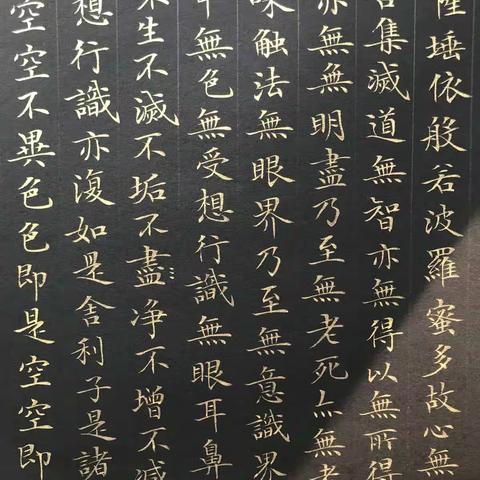 空空不異色色即是空空即
想行識亦復如是舍利子是諸
不生不滅不垢不盡净不增不減
無色無受想行識無眼耳鼻
味触法無眼界乃至無意識界
亦無無明盡乃至無老死亦無老
集滅道無智亦無得以無所得
埵依般若波羅蜜多故心無